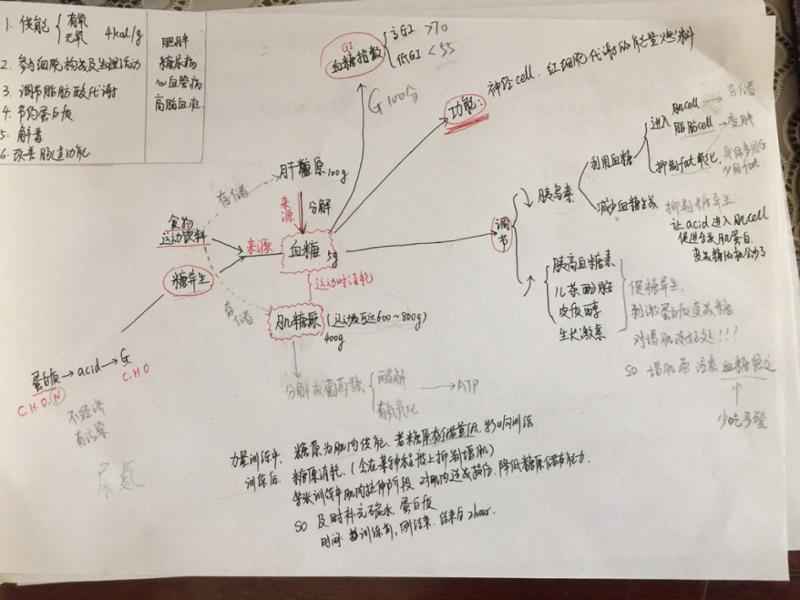 1. 供能 { 有氧 4kcal/g
无氧
2. 参与细胞构成及生理活动
3. 调节脂肪酸代谢
4. 节约蛋白质
5. 解毒
6. 改善肠道功能
肥胖
糖尿病
心血管病
高脂血症
GI
血糖指数 { 高GI >70
低GI <55
G 100分
功能: 神经cell、红细胞代谢的能量燃料
肝糖原100g
存储
来源 分解
食物
运动饮料
来源
血糖 5g
糖异生
存储
运动时消耗
肌糖原 (运动员可达600~800g)
400g
分解成葡萄糖 { 酵解 → ATP
有氧氧化
蛋白质 → acid → G
C.H.O.N C.H.O
不经济
有污染
尿氮
调节
↓ 胰岛素
利用血糖
进入 肌cell → 存储
脂肪cell → 变胖
抑制fat氧化 身体多用G
少用fat
减少血糖生成 抑制糖异生
让acid进入肌cell
促进合成肌蛋白
变成糖的机会少了
↑ 胰高血糖素
儿茶酚胺
皮质醇
生长激素
促糖异生,
刺激蛋白质变成糖
对增肌没好处!!!
SO 增肌 注意血糖稳定
少吃多餐
力量训练中, 糖原为肌肉供能, 若糖原存储量低, 影响训练
训练后 糖原消耗, (会在某种程度上抑制增肌)
训练中肌肉拉伸阶段 对肌肉造成损伤, 降低糖原储存能力.
SO 及时补充碳水、蛋白质
时间: 训练前, 刚结束, 结束后2hour.